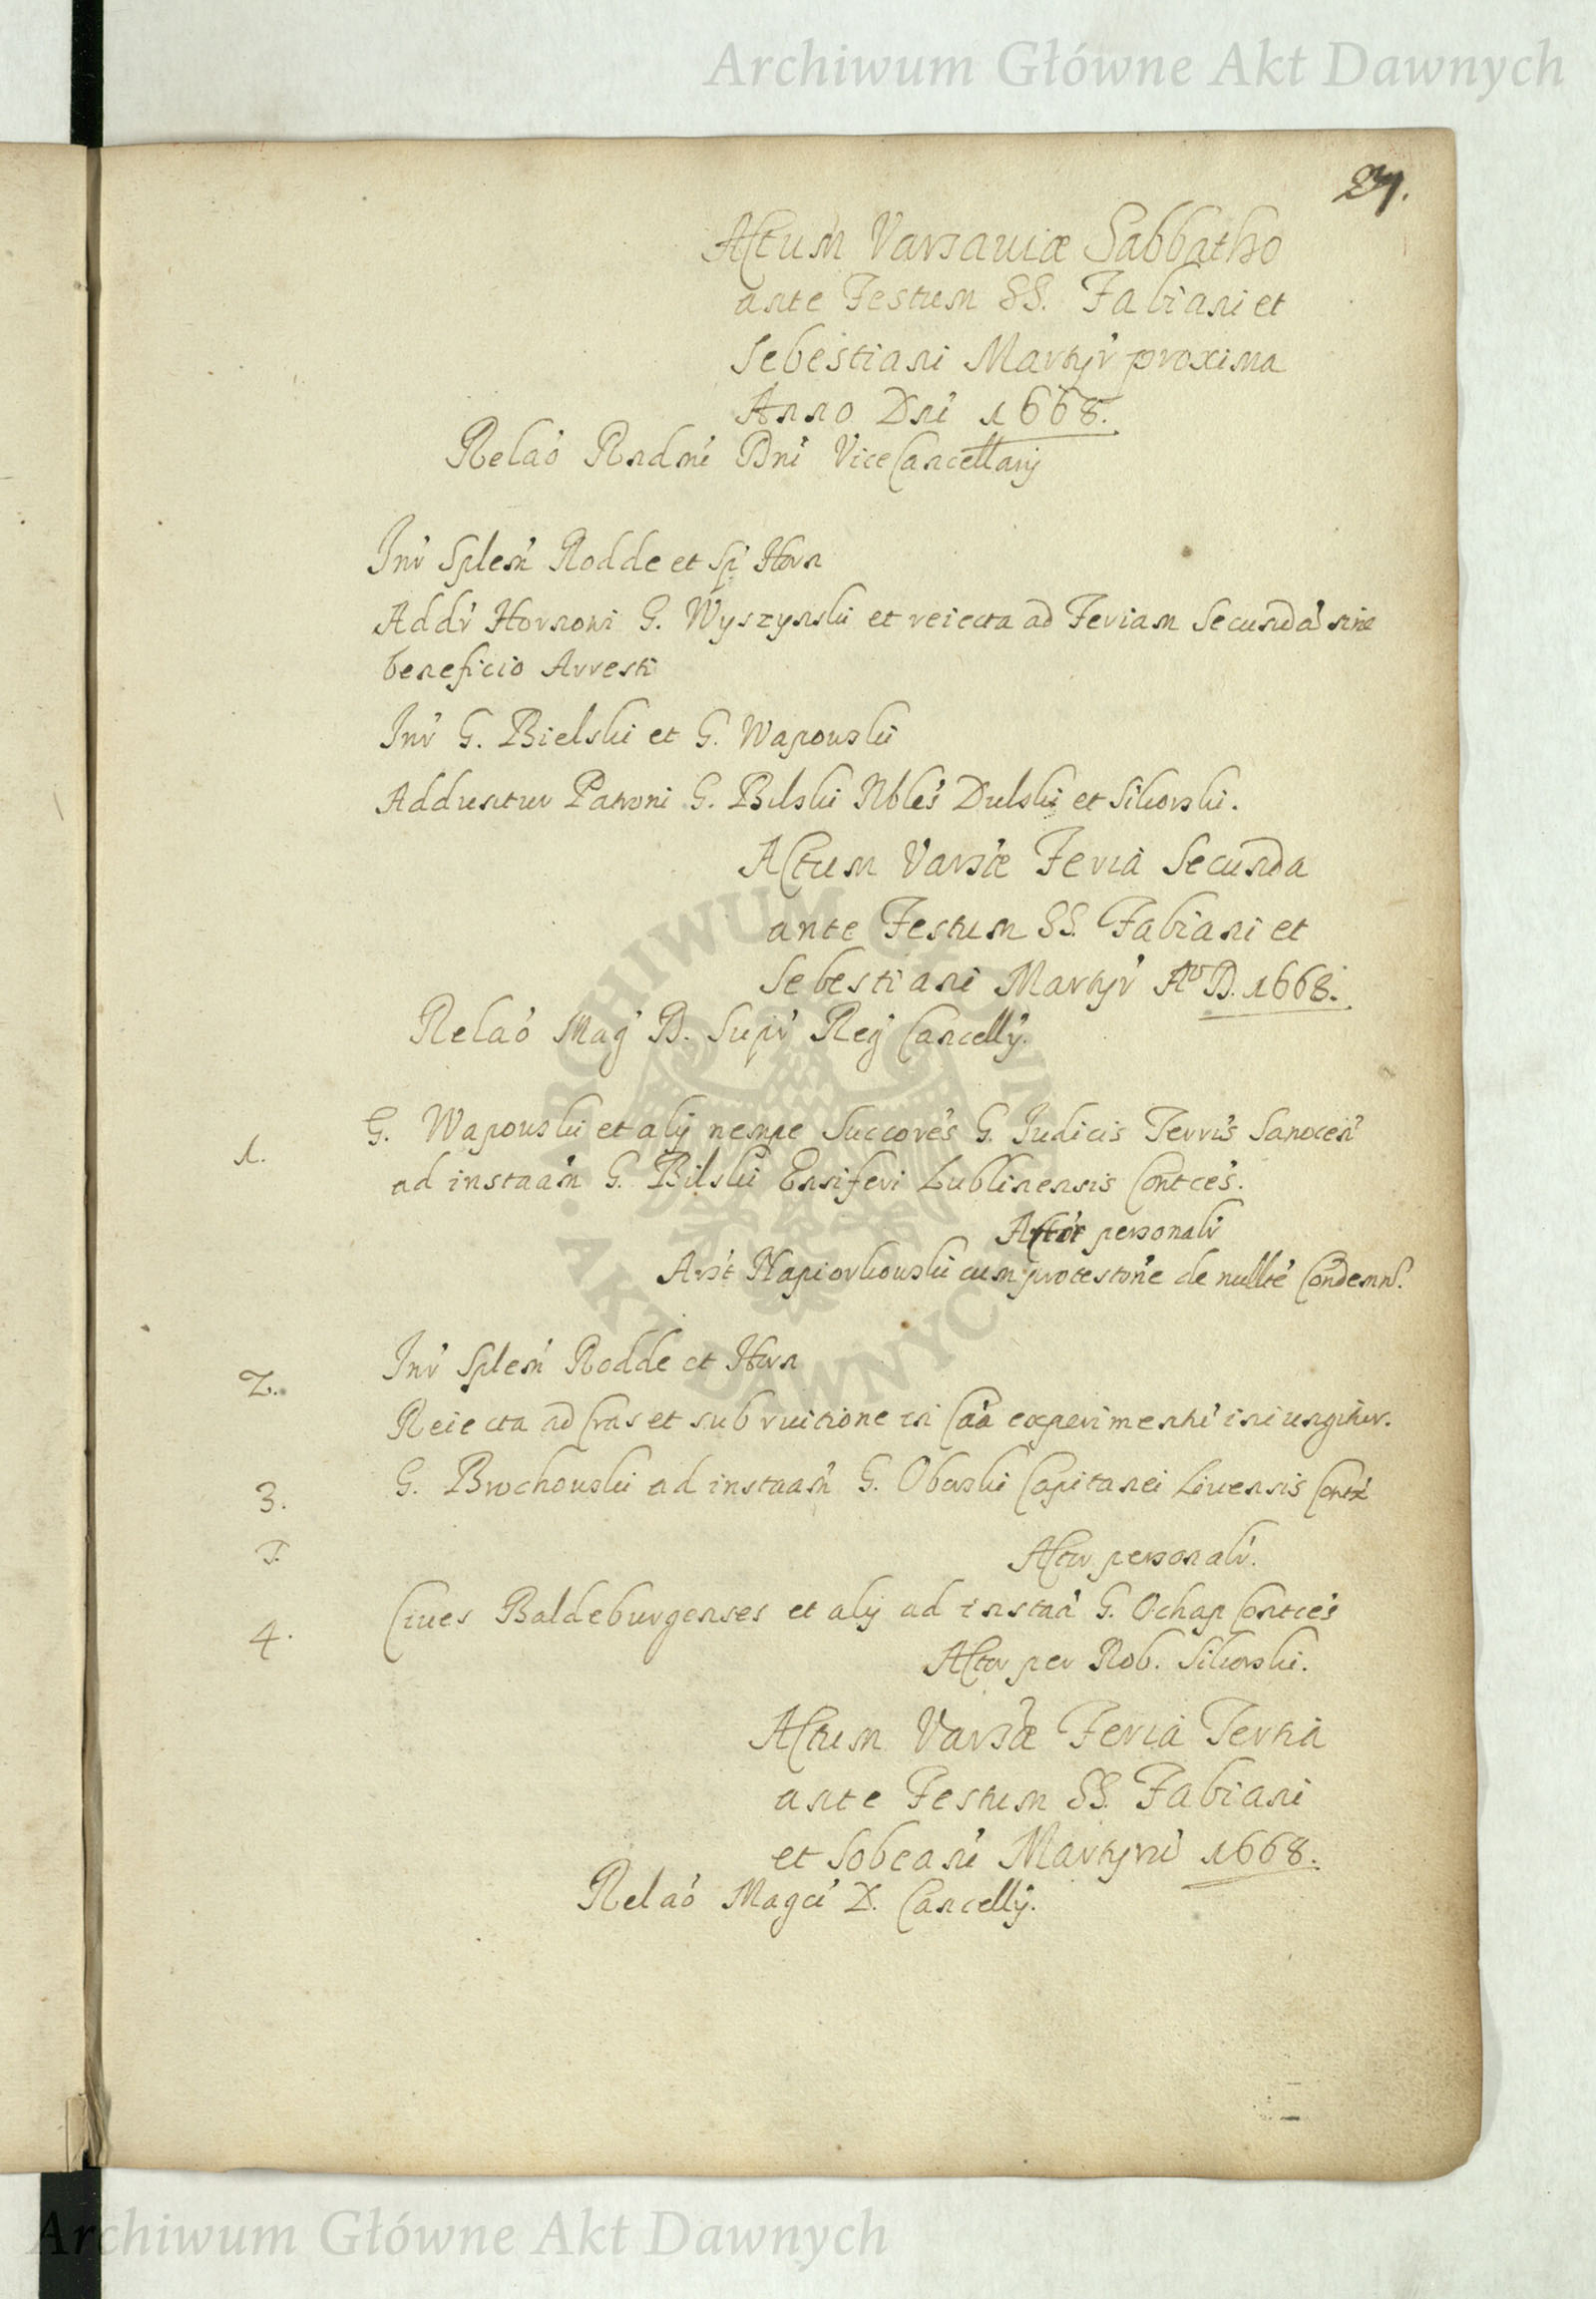 Archiwum Główne Akt Dawnych
Actum Varsauiæ Sabbatho
ante Festum SS. Fabiani et
Sebestiani Martyr' proxima
Anno Dni 1668.
Relaó Rndmi Dni ViceCancellarij
Inr Splem Rodde et Sp Horn
Addr Hornowi G. Wyszynski et reiecta ad Feriam Secunda' sine
beneficio Arresti
Inr G. Bielski et G. Wapouski
Adduntur Patroni G. Bilski Nbles Dulski et Sikorski.
Actum Varsiæ Feria Secunda
ante Festum SS. Fabiani et
Sebestiani Martyr' Aº D. 1668.
Relaó Mag D. Supr Reg Cancellij.
1. G. Wapouski et alij nempe Succores G. Iudicis Terris Sanocen'
ad instaam G. Bilski Ensiferi Lublinensis Contces.
Actor personalr
Arst Napiorkouski cum protestone de nullte Condemn.
2. Inr Splem Rodde et Horn
Reiecta ad Cras et sub ruitione in Caa experimenti iniungitur.
3. G. Brochouski ad instaam G. Oborski Capitanei Liuensis Contx
Actor personalr.
4. Ciues Baldeburgenses et alij ad instaa G. Ochap Contces
Actor per Nob. Sikorski.
Actum Varsiæ Feria Tertia
ante Festum SS. Fabiani
et Sobeani Martyru 1668.
Relaó Magci D. Cancellij.
ARCHIWUM GŁÓWNE
AKT DAWNYCH
Archiwum Główne Akt Dawnych